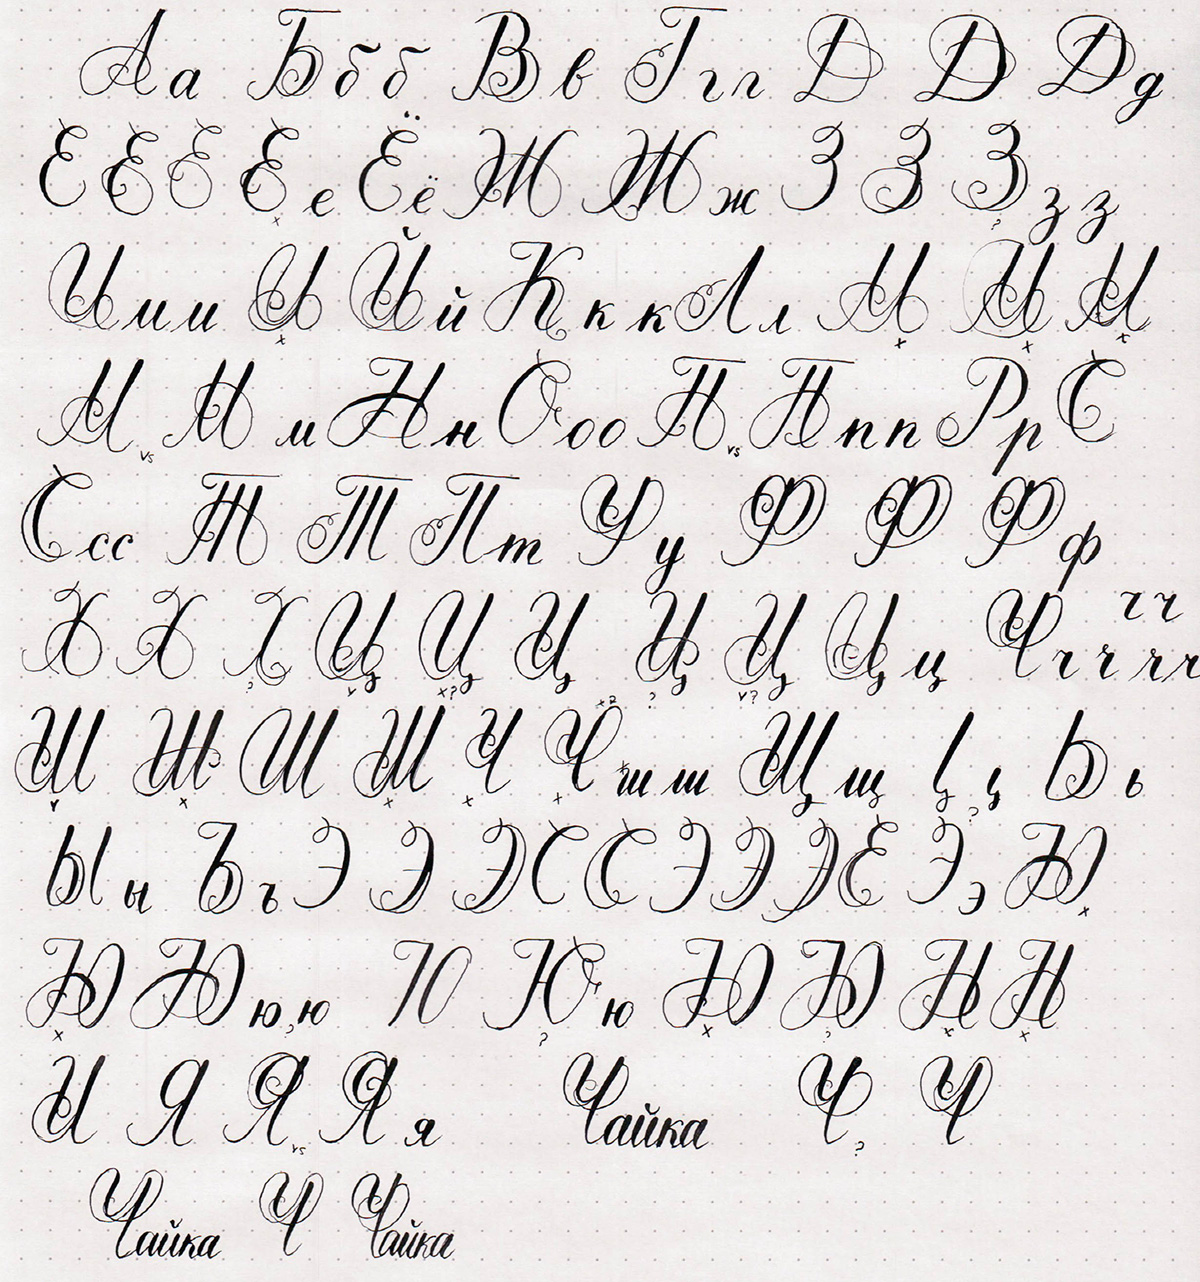 А а Б б б В в Г г г Д Д Д д
Е Е Е Е е Ё ё Ж Ж ж З З З з з
И и и И Й й К к к Л л М М М
М vs М м Н н О о о П vs П п п Р р С
С с с Т Т П т У у Ф Ф Ф ф
Х Х Х Ц Ц Ц Ц Ц Ц ц Ч ч ч ч ч ч ч
Ш Ш Ш Ш Ч Ч ш ш Щ щ Ь ь
Ы ы Ъ ъ Э Э Э С С Э Э Э Е Э э Ю
Ю Ю ю, ю Ю Ю ю Ю Ю Н Н
И Я Я vs Я я Чайка Ч Ч
Чайка Ч Чайка